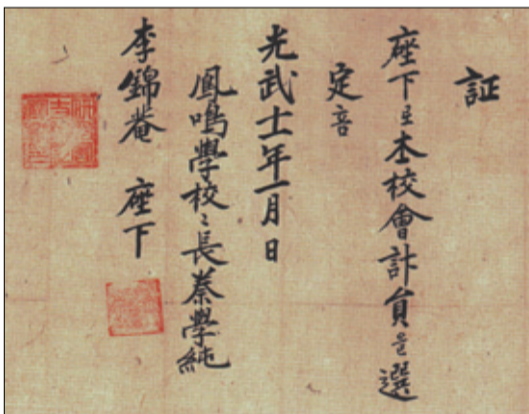 証
座下로本校會計員을選
定홈
光武十一年一月 日
鳳鳴學校〻長蔡學純
李錦菴 座下